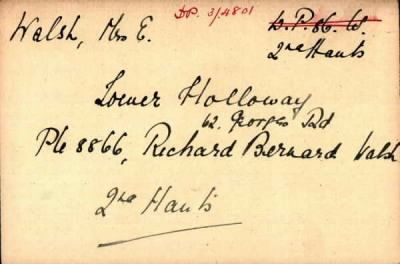 D.P. 3/4801
Walsh, Mrs E. D.P. 86. W.
2nd Hants
Lower Holloway
62. Georges Rd
Pte 8866, Richard Bernard Walsh
2nd Hants